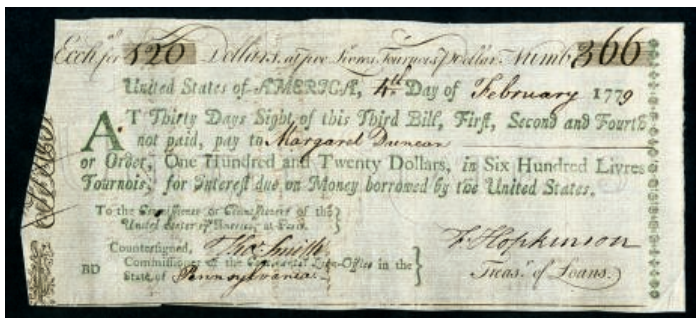 Exchᵃ for 120 Dollars, at five Livres Tournois ⅌ Dollar. Numb. 366
United States of AMERICA, 4th Day of February 1779
AT Thirty Days Sight of this Third Bill, First, Second and Fourth
not paid, pay to Margaret Duncan
or Order, One Hundred and Twenty Dollars, in Six Hundred Livres
Tournois, for Interest due on Money borrowed by the United States.
To the Commissioner or Commissioners of the
United States of America, at Paris.
Countersigned, Thos. Smith
Commissioner of the Continental Loan-Office in the
BD State of Pennsylvania.
F. Hopkinson
Treasr. of Loans.